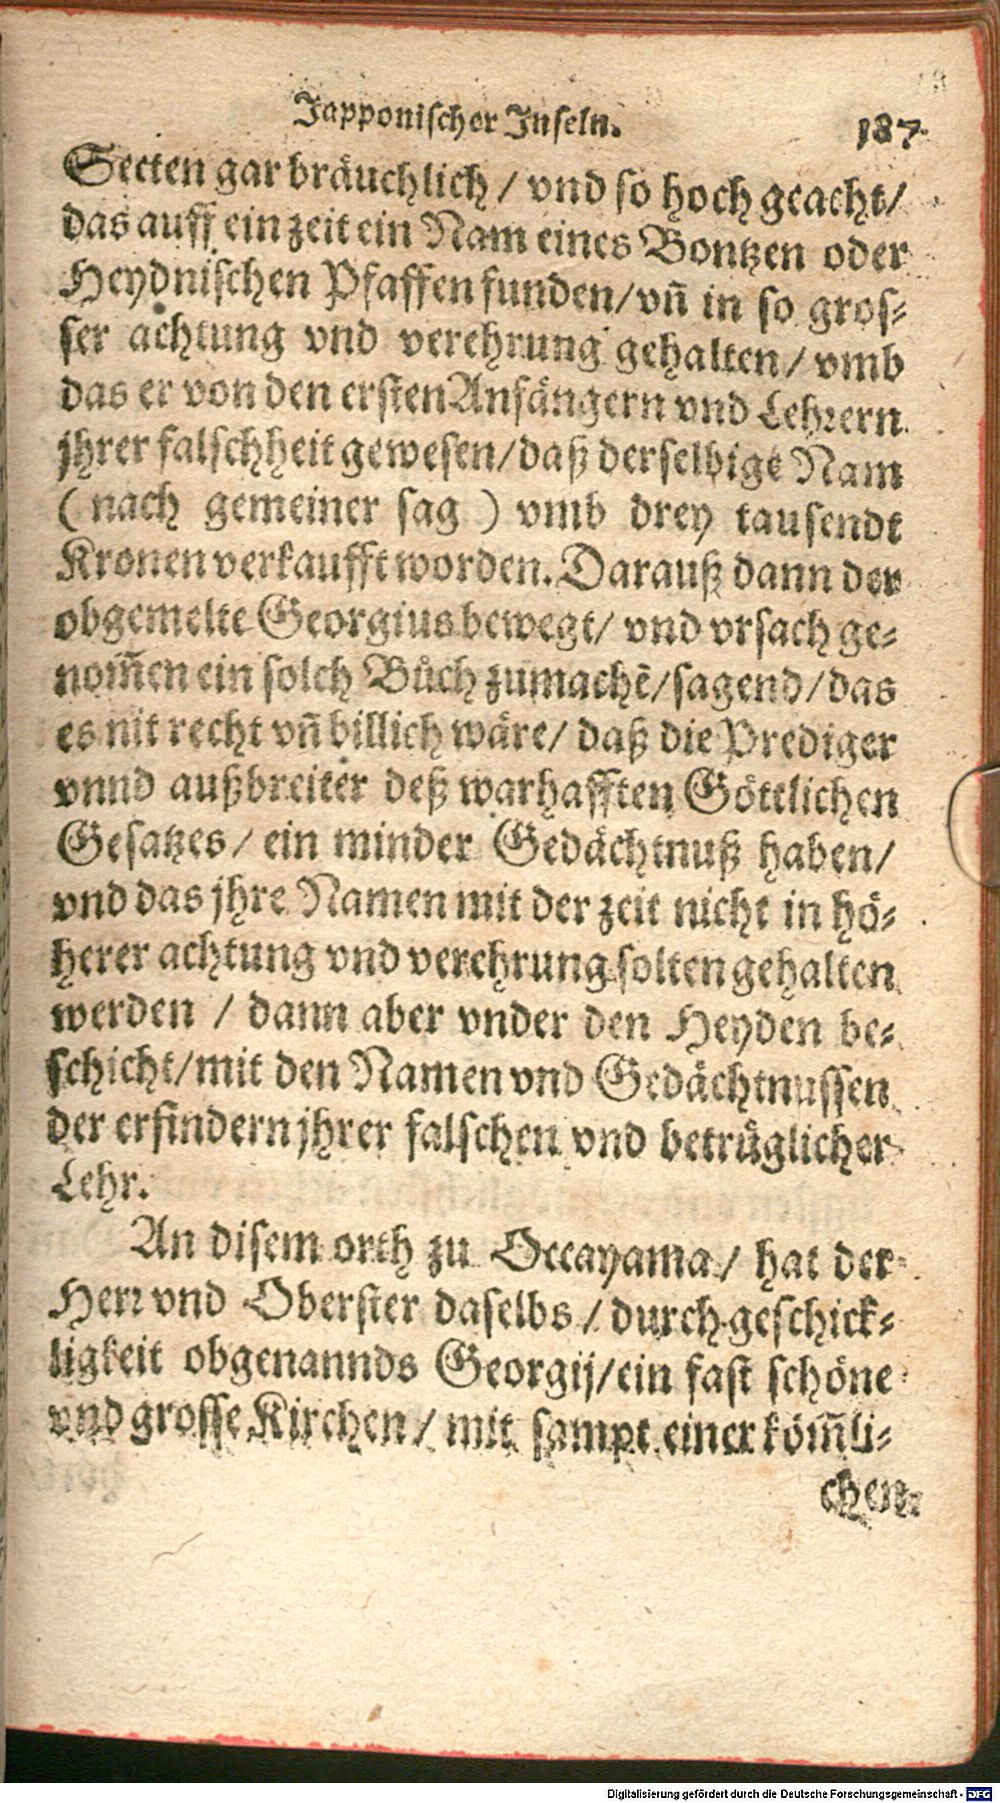 Japponischer Inseln. 187
Secten gar bräuchlich / vnd so hoch geacht /
das auff ein zeit ein Nam eines Bontzen oder
Heydnischen Pfaffen funden / vñ in so gros-
ser achtung vnd verehrung gehalten / vmb
das er von den ersten Anfängern vnd Lehrern
jhrer falschheit gewesen / daß derselbige Nam
( nach gemeiner sag ) vmb drey tausendt
Kronen verkaufft worden. Darauß dann der
obgemelte Georgius bewegt / vnd vrsach ge-
nom̃en ein solch Bůch zumachẽ / sagend / das
es nit recht vñ billich wäre / daß die Prediger
vnnd außbreiter deß warhafften Göttlichen
Gesatzes / ein minder Gedächtnuß haben /
vnd das jhre Namen mit der zeit nicht in hö-
herer achtung vnd verehrung solten gehalten
werden / dann aber vnder den Heyden be-
schicht / mit den Namen vnd Gedächtnussen
der erfindern jhrer falschen vnd betrüglicher
Lehr.
An disem orth zu Occayama / hat der
Herr vnd Oberster daselbs / durch geschick-
ligkeit obgenannds Georgij / ein fast schöne
vnd grosse Kirchen / mit sampt einer köm̃li-
chen
Digitalisierung gefördert durch die Deutsche Forschungsgemeinschaft - DFG